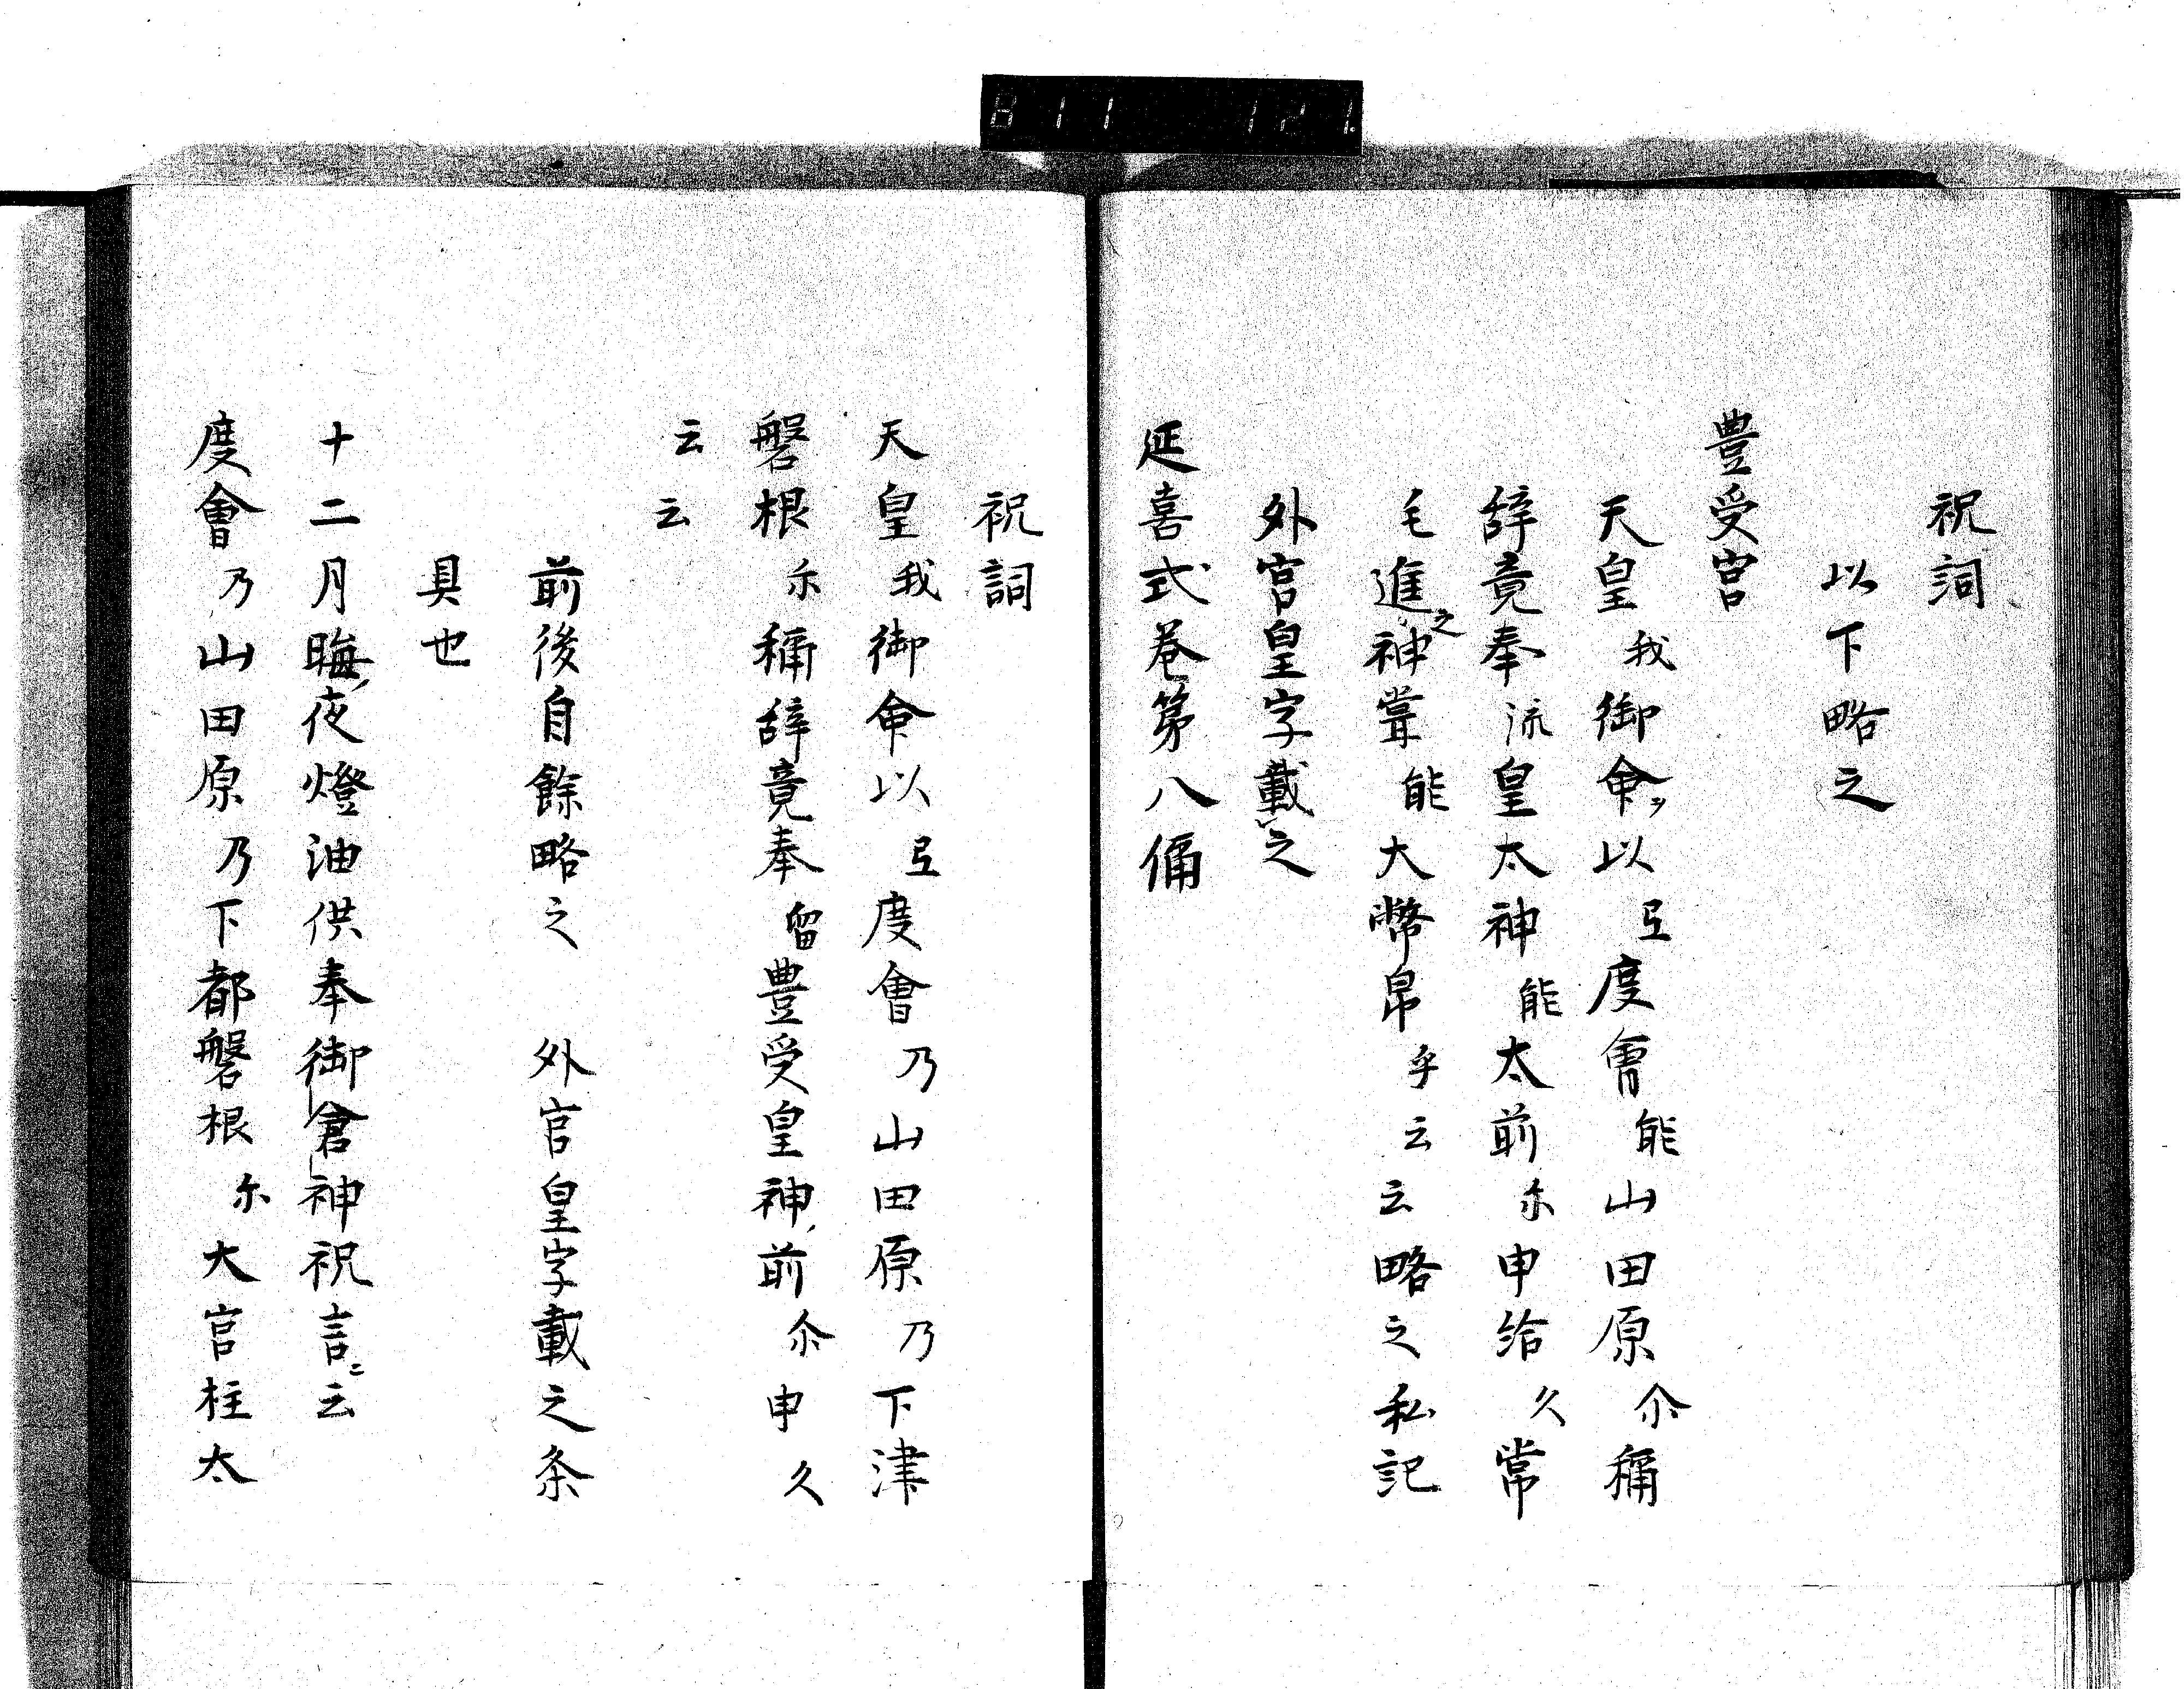 祝詞
以下略之
豊受宮
天皇我御命以弖度會能山田原尓稱
辞竟奉流皇太神能太前尓申給久常
毛進之神甞能大幣帛乎云云略之私記
外宮皇字載之
延喜式巻第八偁
祝詞
天皇我御命以弖度會乃山田原乃下津
磐根尓稱辞竟奉留豊受皇神前尓申久
云云
前後自餘略之　外宮皇字載之条
具也
十二月晦夜燈油供奉御倉神祝言ニ云
度會乃山田原乃下都磐根尓大宮柱太